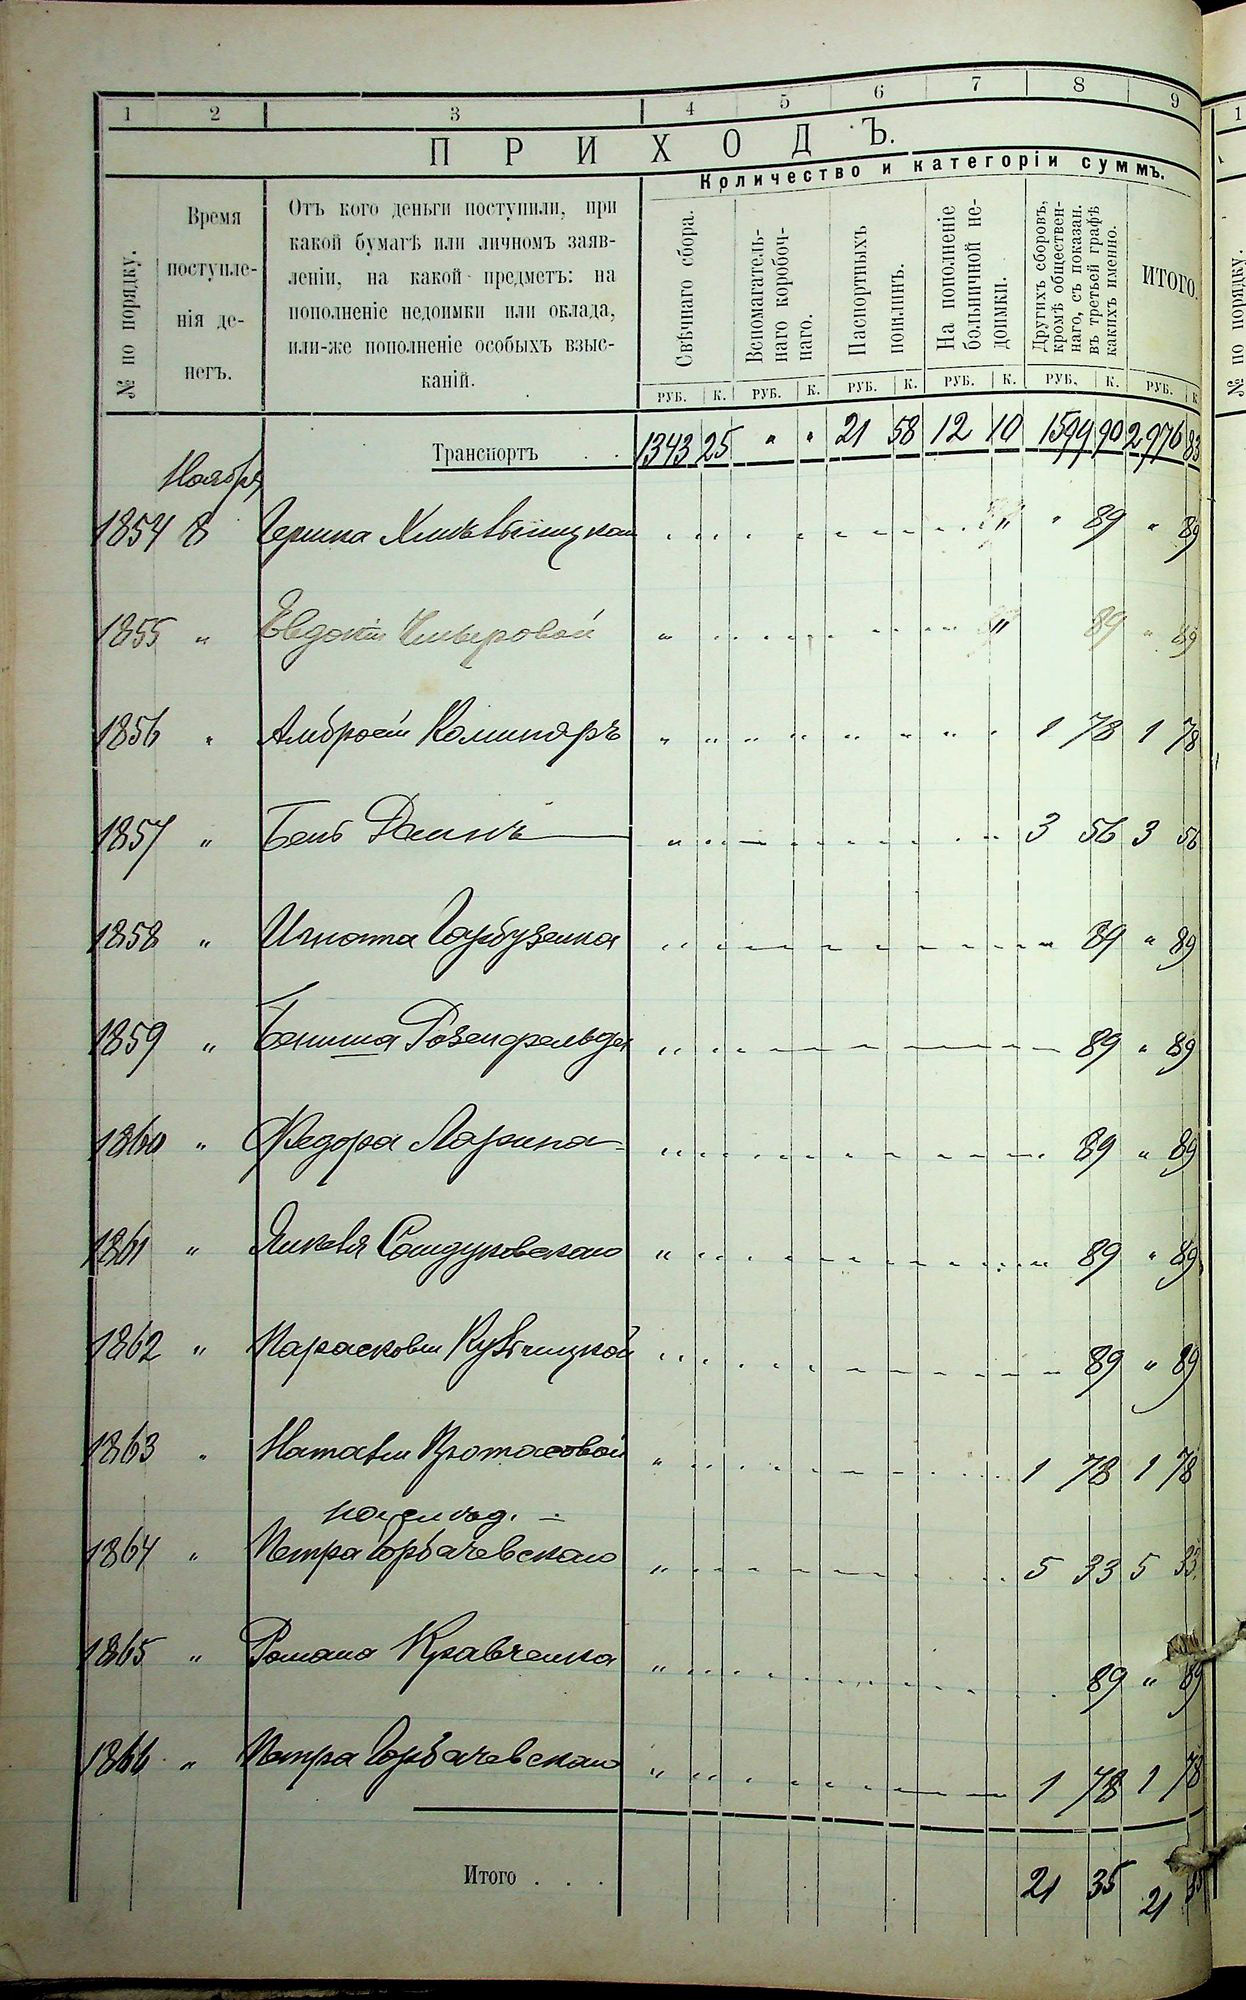 1 2 3 4 5 6 7 8 9
ПРИХОДЪ.
Количество и категоріи суммъ.
№ по порядку.
Время поступле-
нія де-
негъ.
Отъ кого деньги поступили, при
какой бумагѣ или личномъ заяв-
леніи, на какой предметъ: на
пополненіе недоимки или оклада,
или-же пополненіе особыхъ взыс-
каній.
Свѣчнаго сбора.
Вспомагатель-
наго коробоч-
наго.
Паспортныхъ
пошлинъ.
На пополненіе
больничной не-
доимки.
Другихъ сборовъ,
кромѣ обществен-
наго, съ показан.
въ третьей графѣ
какихъ именно.
ИТОГО.
РУБ. К. РУБ. К. РУБ. К. РУБ. К. РУБ. К. РУБ. К
Транспортъ . . 1343 25 " " 21 58 12 10 1599 90 2976 83
Ноября
1854 8 89 " 89
1855 " Евдокіи 89 " 89
1856 " Амвросій 1 78 1 78
1857 " 3 56 3 56
1858 " Игната Гарбузенка 89 " 89
1859 " Бениша Розенфельда 89 " 89
1860 " Федора Ларина 89 " 89
1861 " Якова 89 " 89
1862 " Парасковіи 89 " 89
1863 " Наталіи Протасовой 1 78 1 78
1864 " Петра Горбачевскаго 5 33 5 33
1865 " Романа Кравченка 89 " 89
1866 " Петра Горбачевскаго 1 78 1 78
Итого . . . 21 35 21 35
1
№ по порядку.